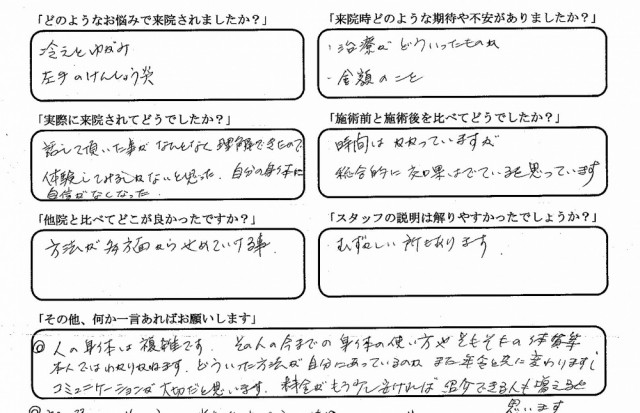 「どのようなお悩みで来院されましたか？」
冷えとゆがみ
左手のけんしょう炎
「来院時どのような期待や不安がありましたか？」
・治療がどういったものか
・金額のこと
「実際に来院されてどうでしたか？」
話して頂いた事がなんとなく理解できたので
体験してみるしかないと思った。自分の身体に
自信がなくなった
「施術前と施術後を比べてどうでしたか？」
時間はかかっていますが
総合的に効果はでていると思っています
「他院と比べてどこが良かったですか？」
方法が多方面からせめていける事.
「スタッフの説明は解りやすかったでしょうか？」
むずかしい所もあります.
「その他、何か一言あればお願いします」
◎人の身体は複雑です. その人の今までの身体の使い方やそもそもの体質等
本人ではわかりかねます. どういった方法が自分にあっているのか また年令と共に変わりますし
コミュニケーションが大切だと思います. 料金がもう少し安ければ 紹介できる人も増えると
思います